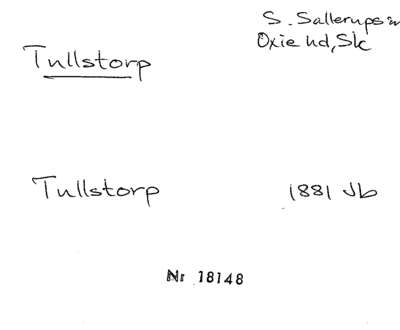 Tullstorp
S. Sallerups sn
Oxie hd, Sk
Tullstorp
1881 Jb
Nr 18148